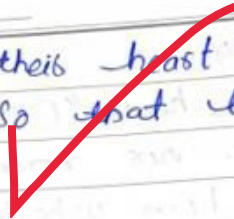 their heart
so that